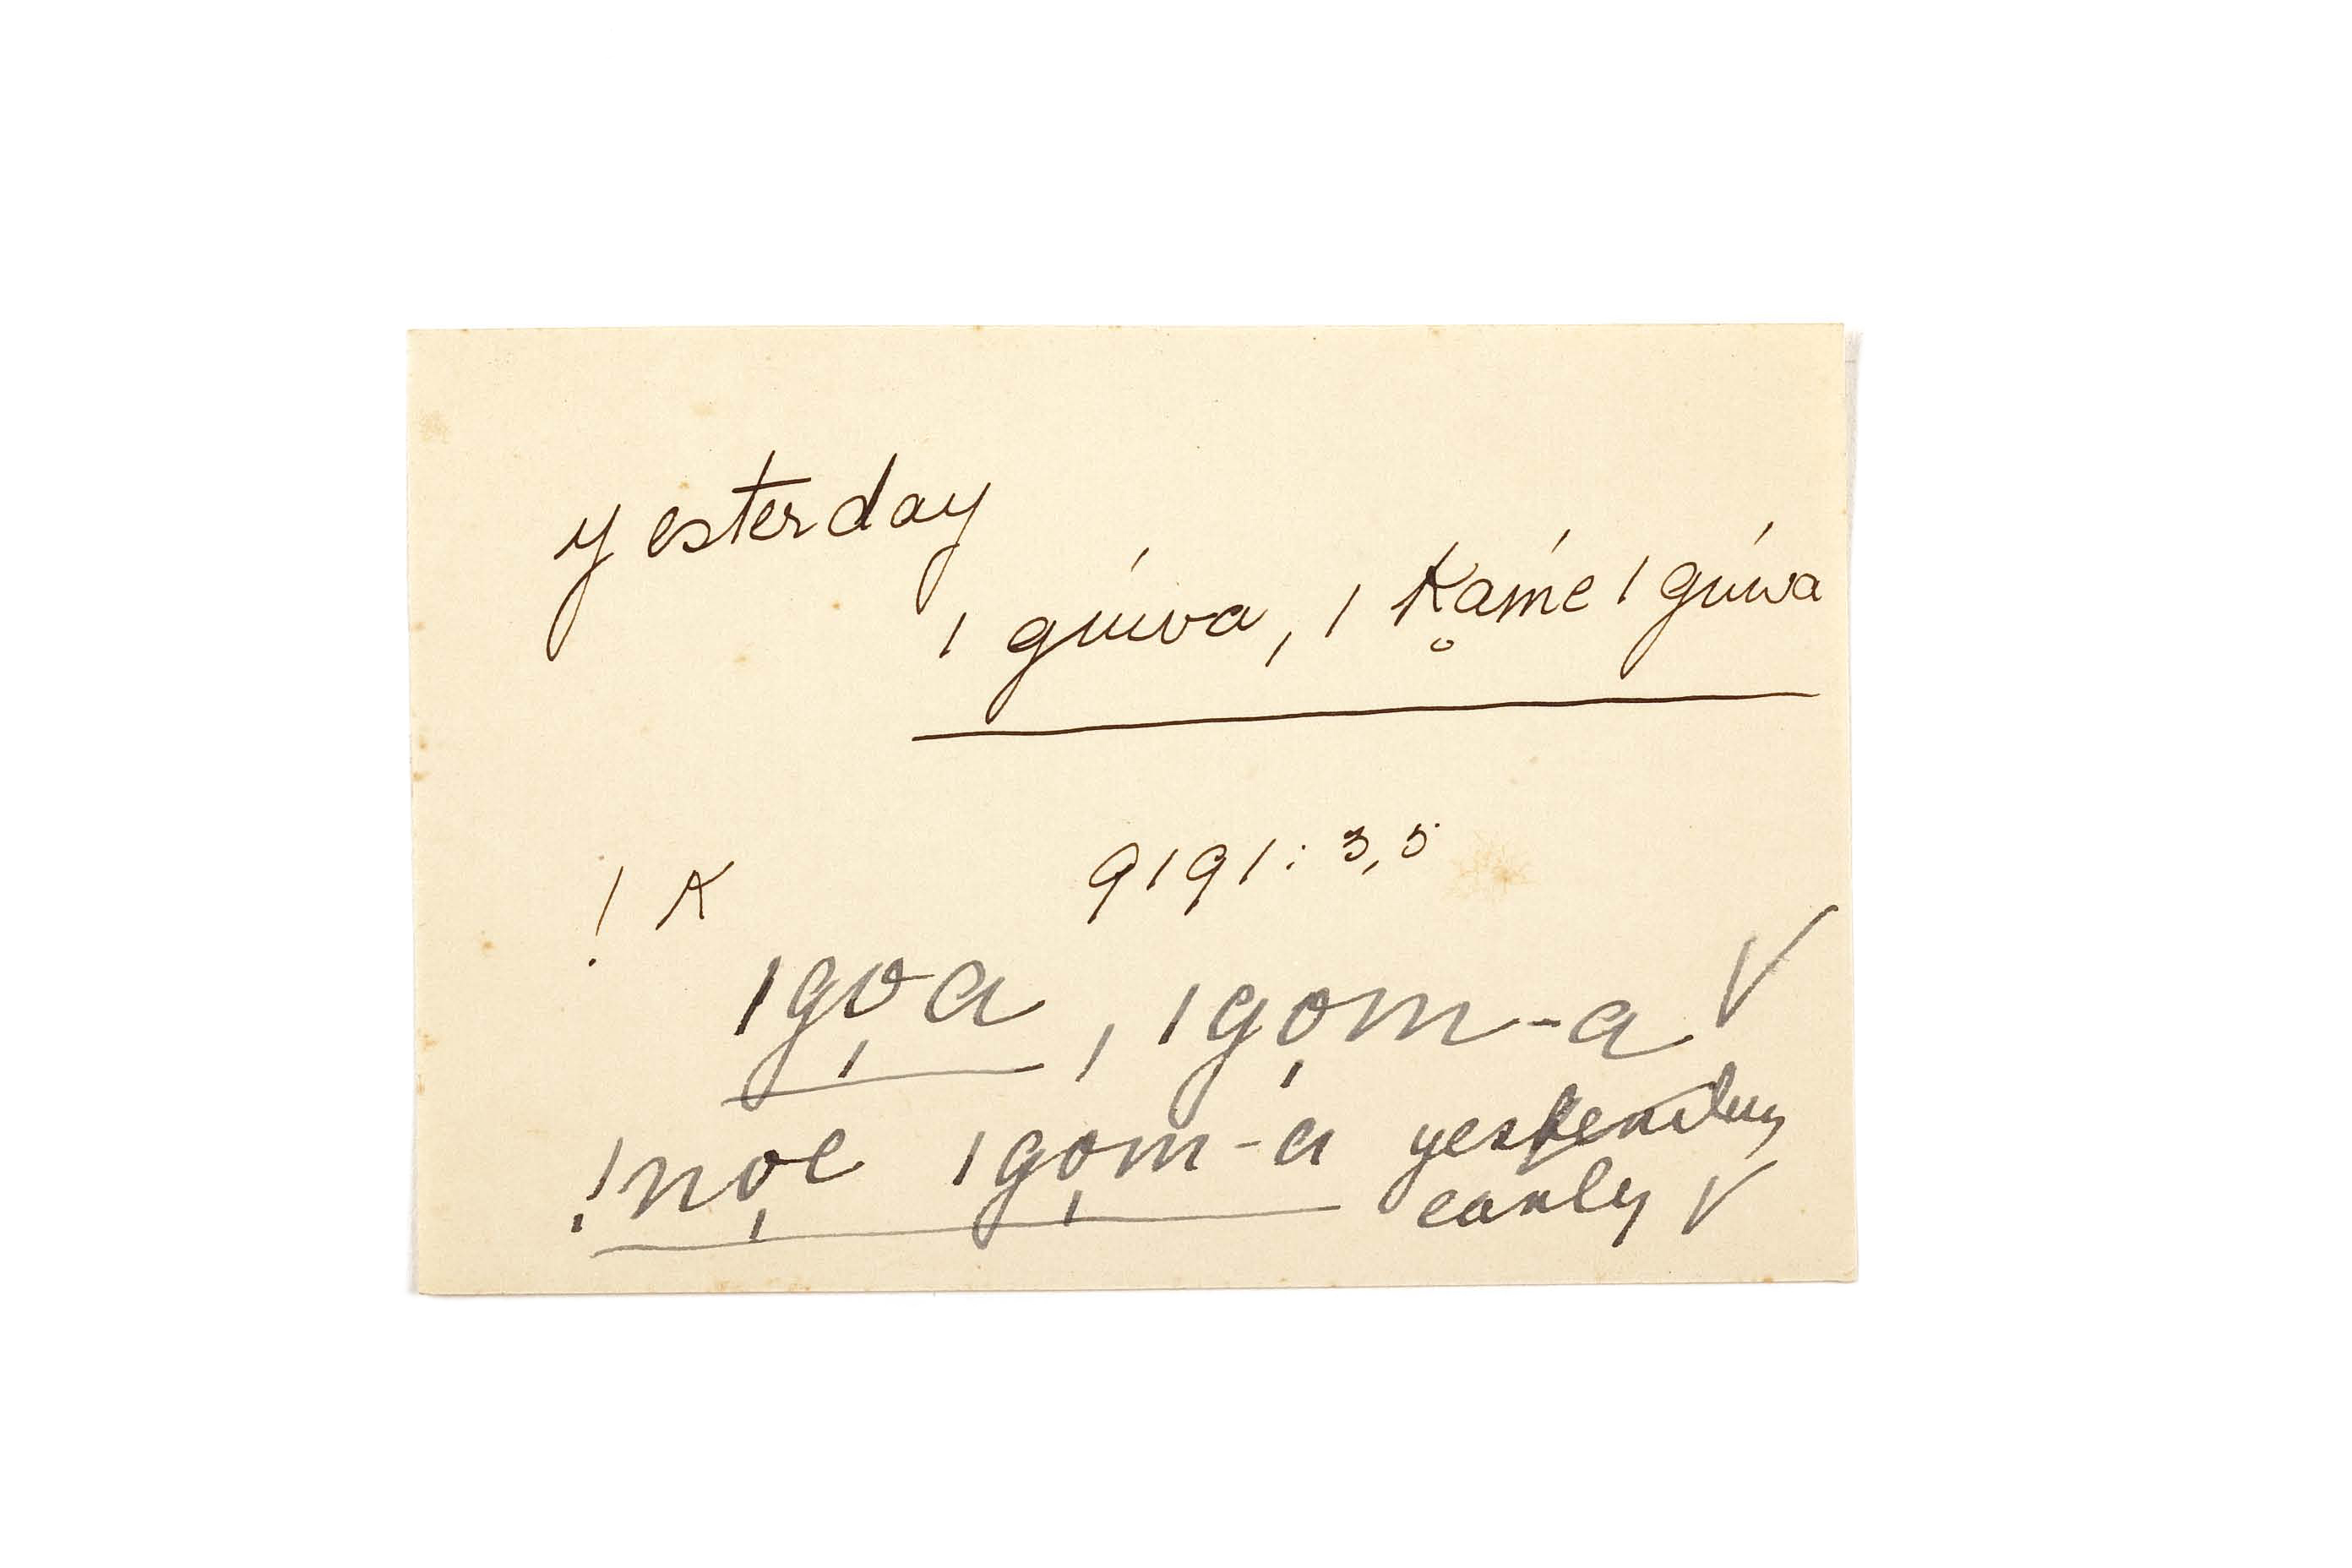 yesterday
ǀ gúiwa, ǀ k̥amé ǀ gúiwa
! k 9191: 3,5
ǀgo̩a, ǀgo̩m-a √
!no̩e ǀgo̩m-a yesterday
early √